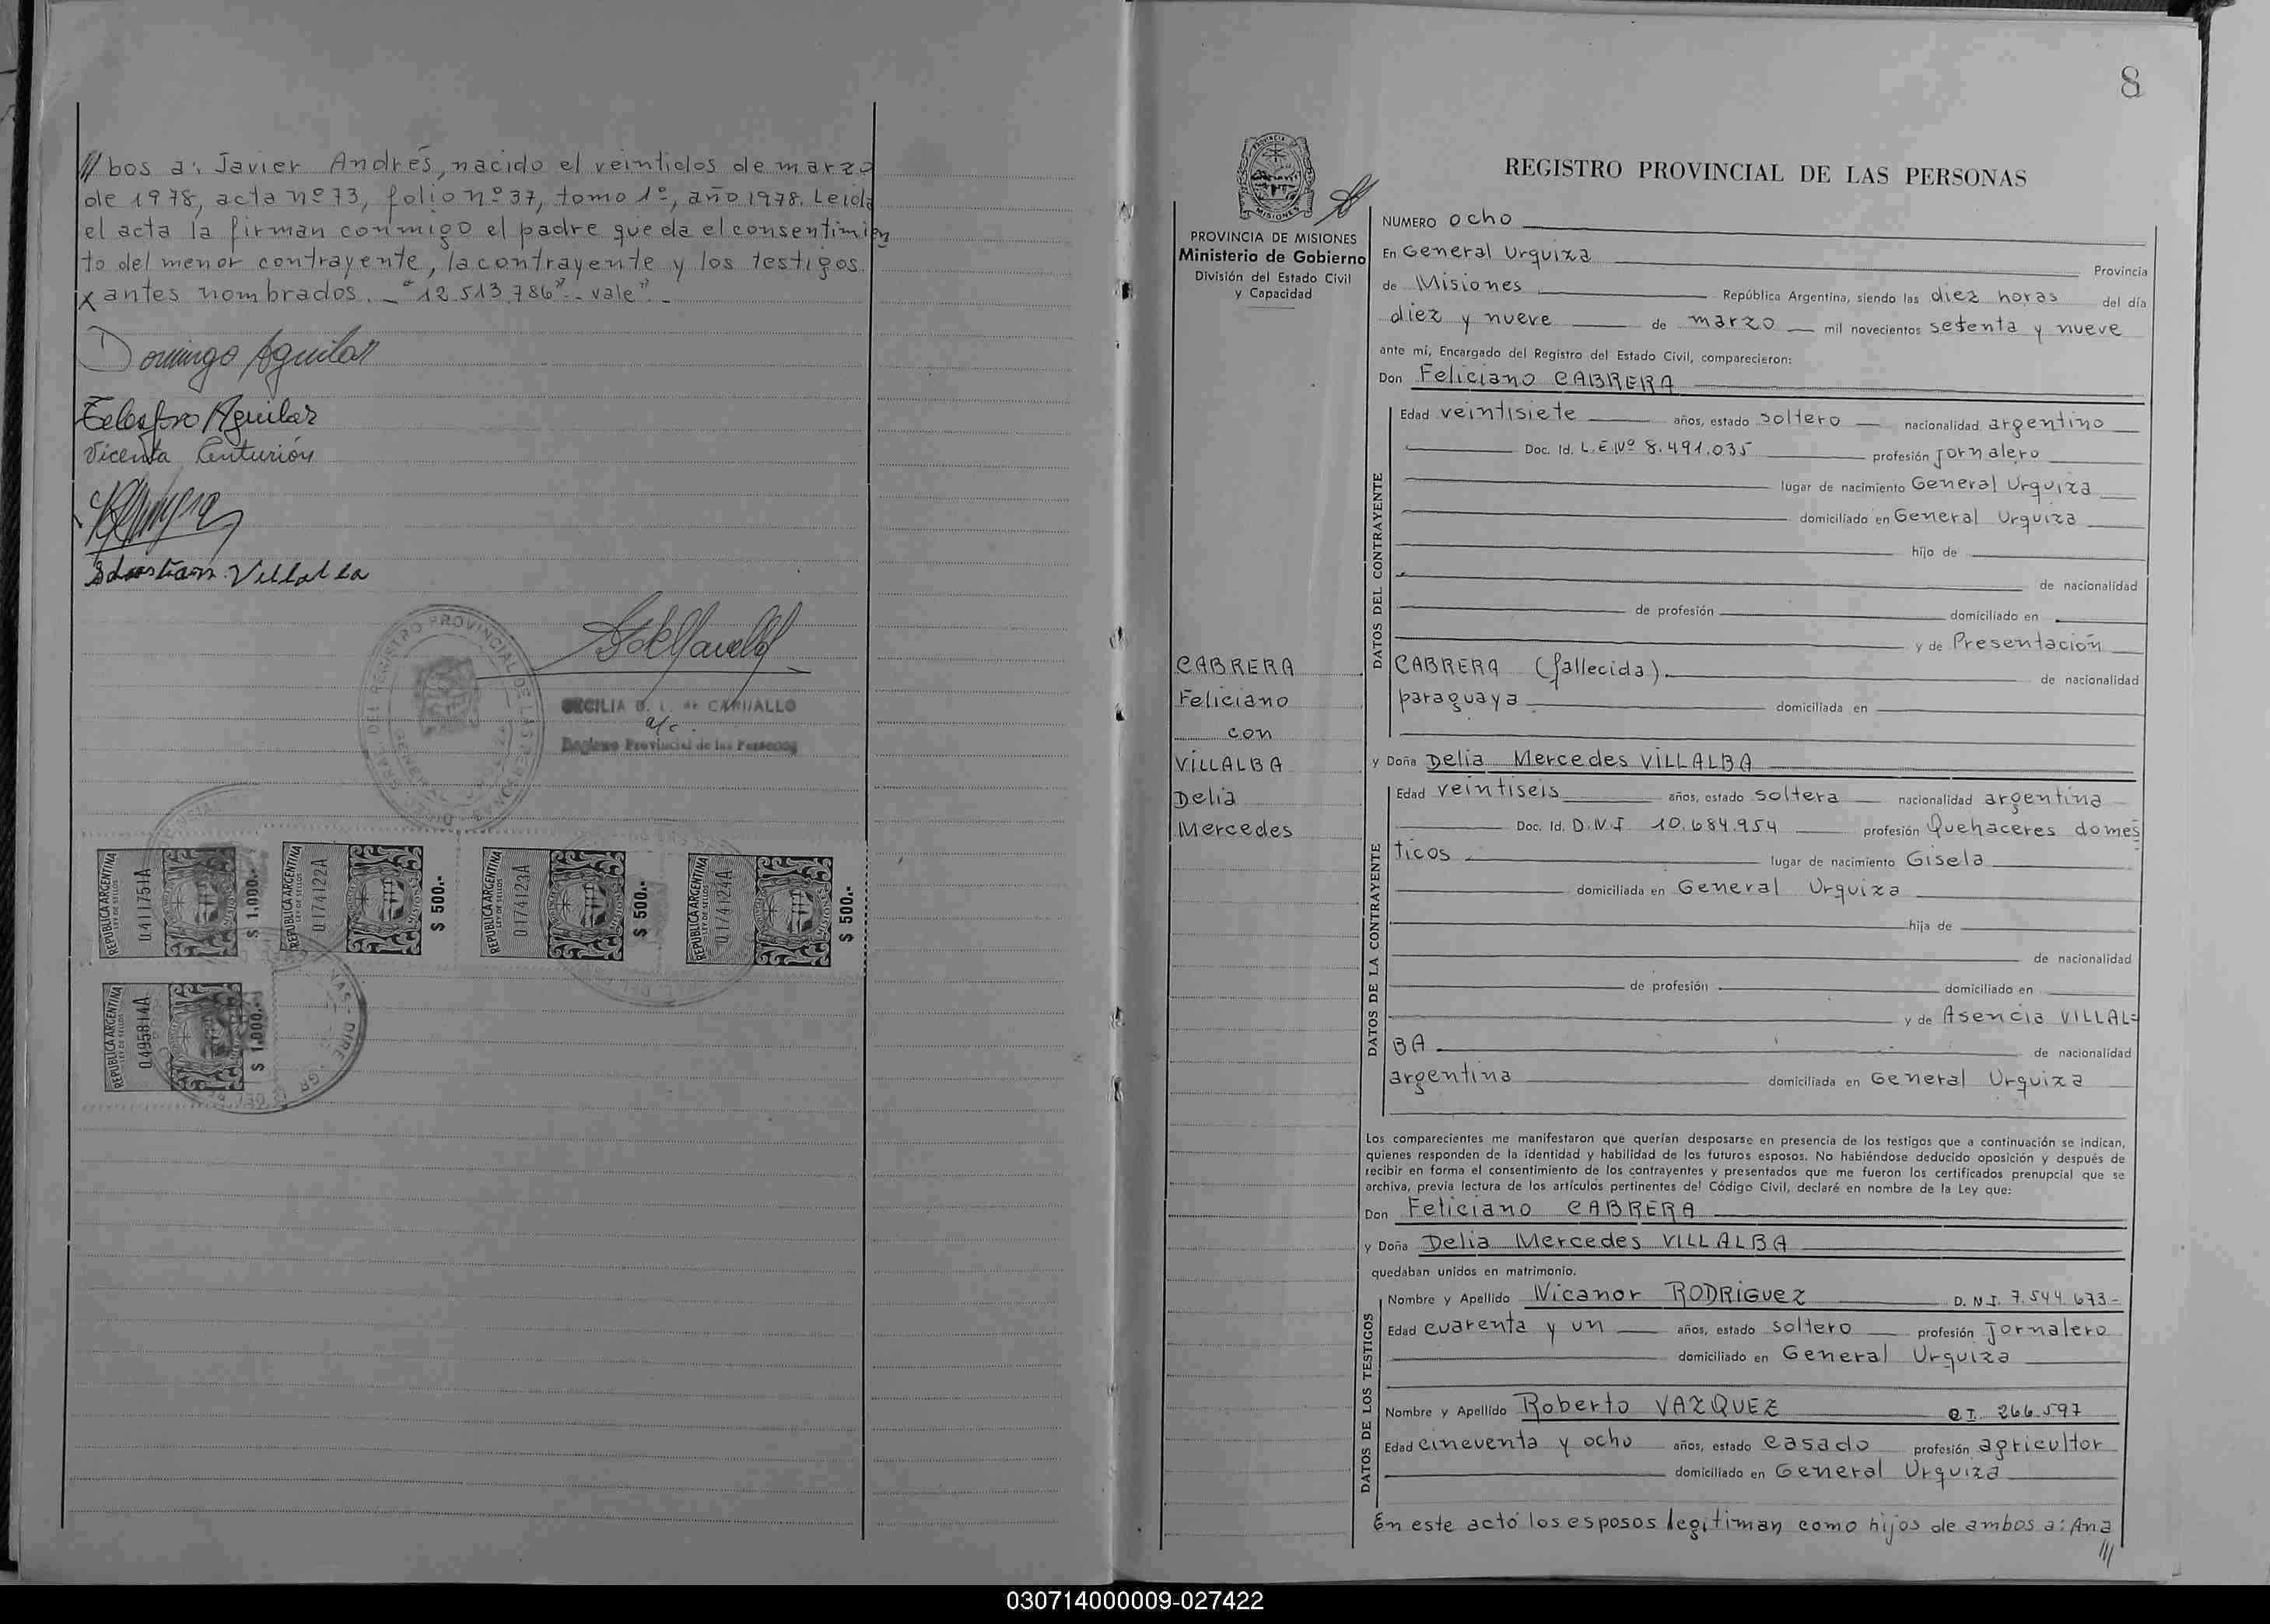 /// bos a: Javier Andrés, nacido el veintidos de marzo
de 1978, acta nº 73, folio nº 37, tomo 1º, año 1978. Leida
el acta la firman conmigo el padre que da el consentimien
to del menor contrayente, la contrayente y los testigos
x antes nombrados. _ "12.513.786" - vale". _
Domingo Aguilar
Telesforo Aguilar
Vicenta Centurión
Villalba
DEL REGISTRO PROVINCIAL DE LAS PERSONAS
CECILIA D. L. de CARVALLO
a/c.
Registro Provincial de las Personas
REPUBLICA ARGENTINA
LEY DE SELLOS
0411751A
$ 1,000.-
REPUBLICA ARGENTINA
LEY DE SELLOS
0174122A
$ 500.-
REPUBLICA ARGENTINA
LEY DE SELLOS
0174123A
$ 500.-
REPUBLICA ARGENTINA
LEY DE SELLOS
0174124A
$ 500.-
REPUBLICA ARGENTINA
LEY DE SELLOS
0495814A
$ 1,000.-
8
PROVINCIA DE MISIONES
Ministerio de Gobierno
División del Estado Civil
y Capacidad
CABRERA
Feliciano
con
VILLALBA
Delia
Mercedes
REGISTRO PROVINCIAL DE LAS PERSONAS
NUMERO ocho
En General Urquiza Provincia
de Misiones República Argentina, siendo las diez horas del día
diez y nueve de marzo mil novecientos setenta y nueve
ante mí, Encargado del Registro del Estado Civil, comparecieron:
Don Feliciano CABRERA
DATOS DEL CONTRAYENTE
Edad veintisiete años, estado soltero nacionalidad argentino
Doc. Id. L.E.Nº 8.491.035 profesión jornalero
lugar de nacimiento General Urquiza
domiciliado en General Urquiza
hijo de
de nacionalidad
de profesión domiciliado en
y de Presentación
CABRERA (fallecida). de nacionalidad
paraguaya domiciliada en
y Doña Delia Mercedes VILLALBA
DATOS DE LA CONTRAYENTE
Edad veintiseis años, estado soltera nacionalidad argentina
Doc. Id. D.N.I. 10.684.954 profesión Quehaceres domes
ticos lugar de nacimiento Gisela
domiciliada en General Urquiza
hija de
de nacionalidad
de profesión domiciliado en
y de Asencia VILLAL=
BA de nacionalidad
argentina domiciliada en General Urquiza
Los comparecientes me manifestaron que querían desposarse en presencia de los testigos que a continuación se indican,
quienes responden de la identidad y habilidad de los futuros esposos. No habiéndose deducido oposición y después de
recibir en forma el consentimiento de los contrayentes y presentados que me fueron los certificados prenupcial que se
archiva, previa lectura de los artículos pertinentes del Código Civil, declaré en nombre de la Ley que:
Don Feliciano CABRERA
y Doña Delia Mercedes VILLALBA
quedaban unidos en matrimonio.
DATOS DE LOS TESTIGOS
Nombre y Apellido Nicanor RODRIGUEZ D. N.I. 7.544.673-
Edad cuarenta y un años, estado soltero profesión jornalero
domiciliado en General Urquiza
Nombre y Apellido Roberto VAZQUEZ C I. 266.597
Edad cincuenta y ocho años, estado casado profesión agricultor
domiciliado en General Urquiza
En este acto los esposos legitiman como hijos de ambos a: Ana
///
030714000009-027422